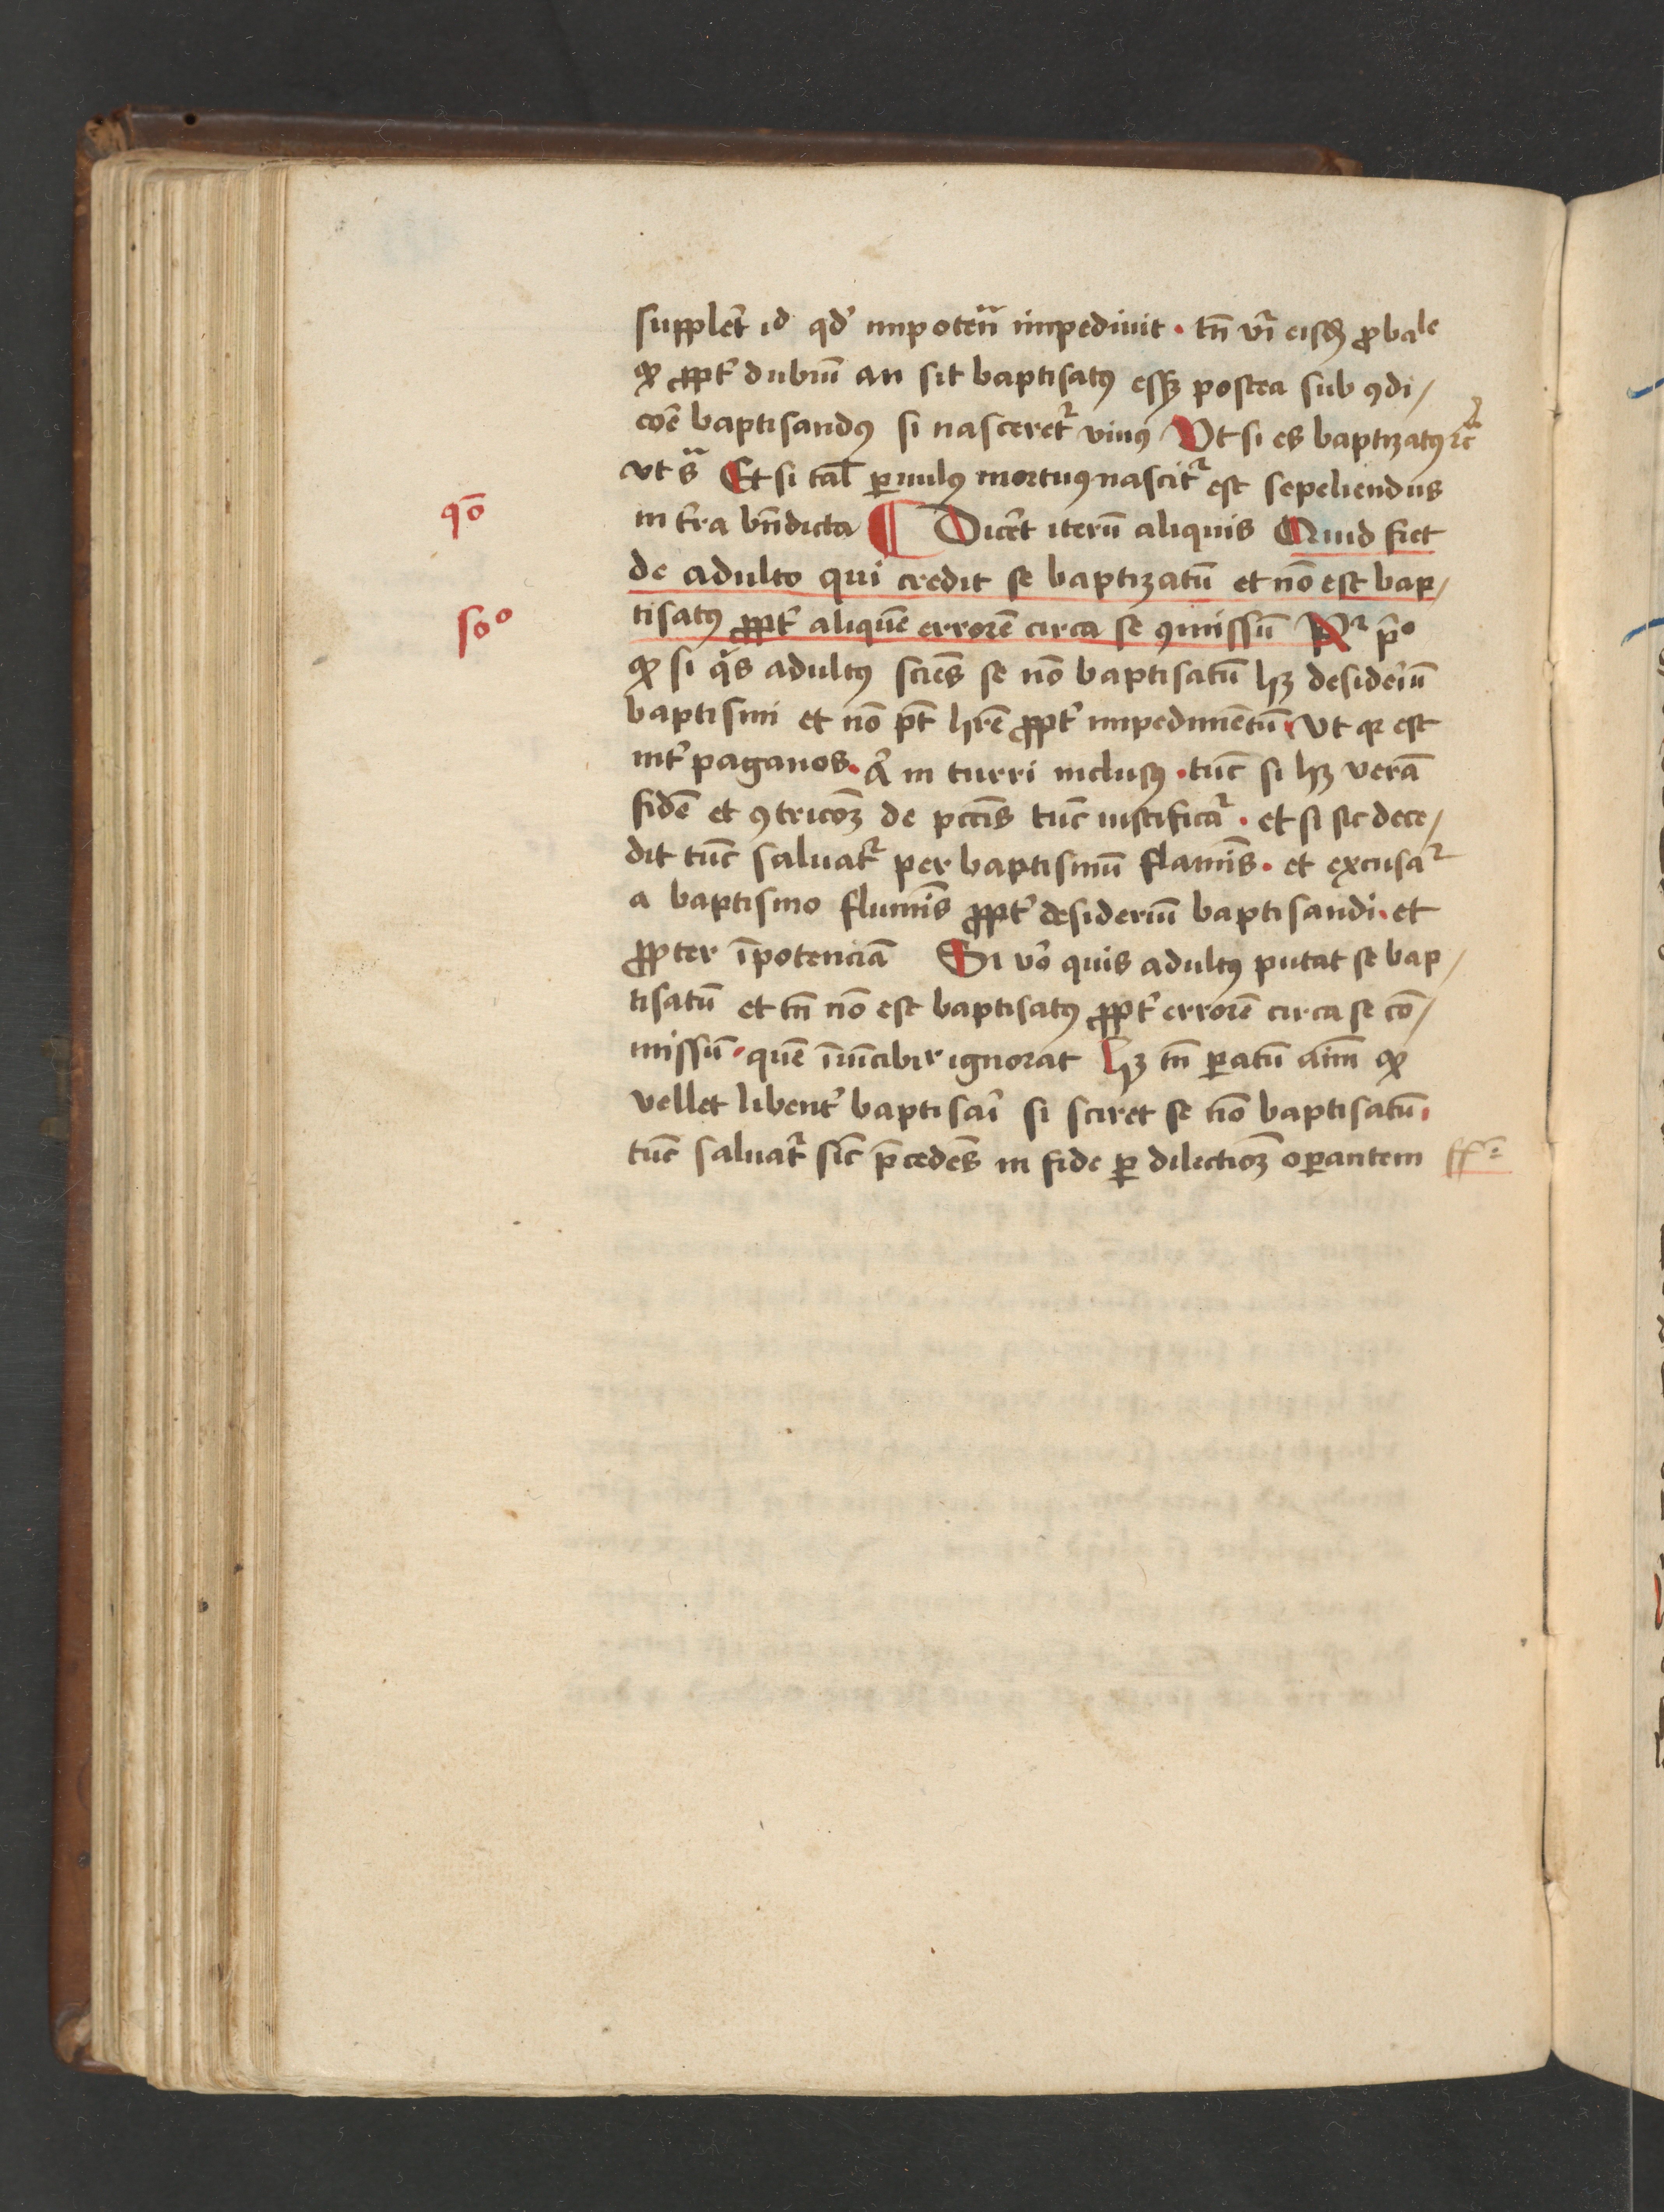 suppleꝛ̄t id qd̛ impotenͣ impedíuit · tn̄ vr̄ eisdꝫ ꝓbale
ꝙ ꝓpt̛ dubiū an sit baptisatꝰ essꝫ postea sub ꝯdi/
coē̄ baptisandꝰ si nasceret᷑ viuꝰ Vt si es baptizatꝰ ⁊c̄
vt sͣ Et si tal̄ ꝑuulꝰ mortuꝰ nascit᷑ est sepeliendus
qō
in t̛ra bn̄dicta ¶ Dicet̛ iterū aliquis Quid fiet
de adulto qui credit se baptizatū et nō est bap/
soº
tisatꝰ ꝓpt̛ aliquē errorē circa se ꝯmissū R᷑ p̄º
ꝙ si qͥs adultꝰ sciēs se nō baptisatū hꝫ desideriū
baptismi et nō pt̄ hr̄e ꝓpt̛ impedimētū Vt qꝛ est
int̛ paganos · aͧ in turri inclusꝰ · tūc si hꝫ verā
fidē et ꝯtricōꝫ de pctīs tūc iustificat᷑ · et si sic dece/
dit tūc saluat᷑ per baptismū flamīs · et excusat᷑
a baptismo flumīs ꝓpt̛ desideriū baptisandi · et
ꝓpter īpotenciā Si vō quis adultꝰ putat se bap/
tisatū et tn̄ nō est baptisatꝰ ꝓpt̛ errorē circa se cō/
missū · quē īuīcibłr ignorat hꝫ tn̄ ꝑatū aīm ꝙ
vellet libent̛ baptisari si sciret se nō baptisatū
tūc saluat᷑ sic̄ p̄cedēs in fide ꝑ dilectioꝫ oꝑantem